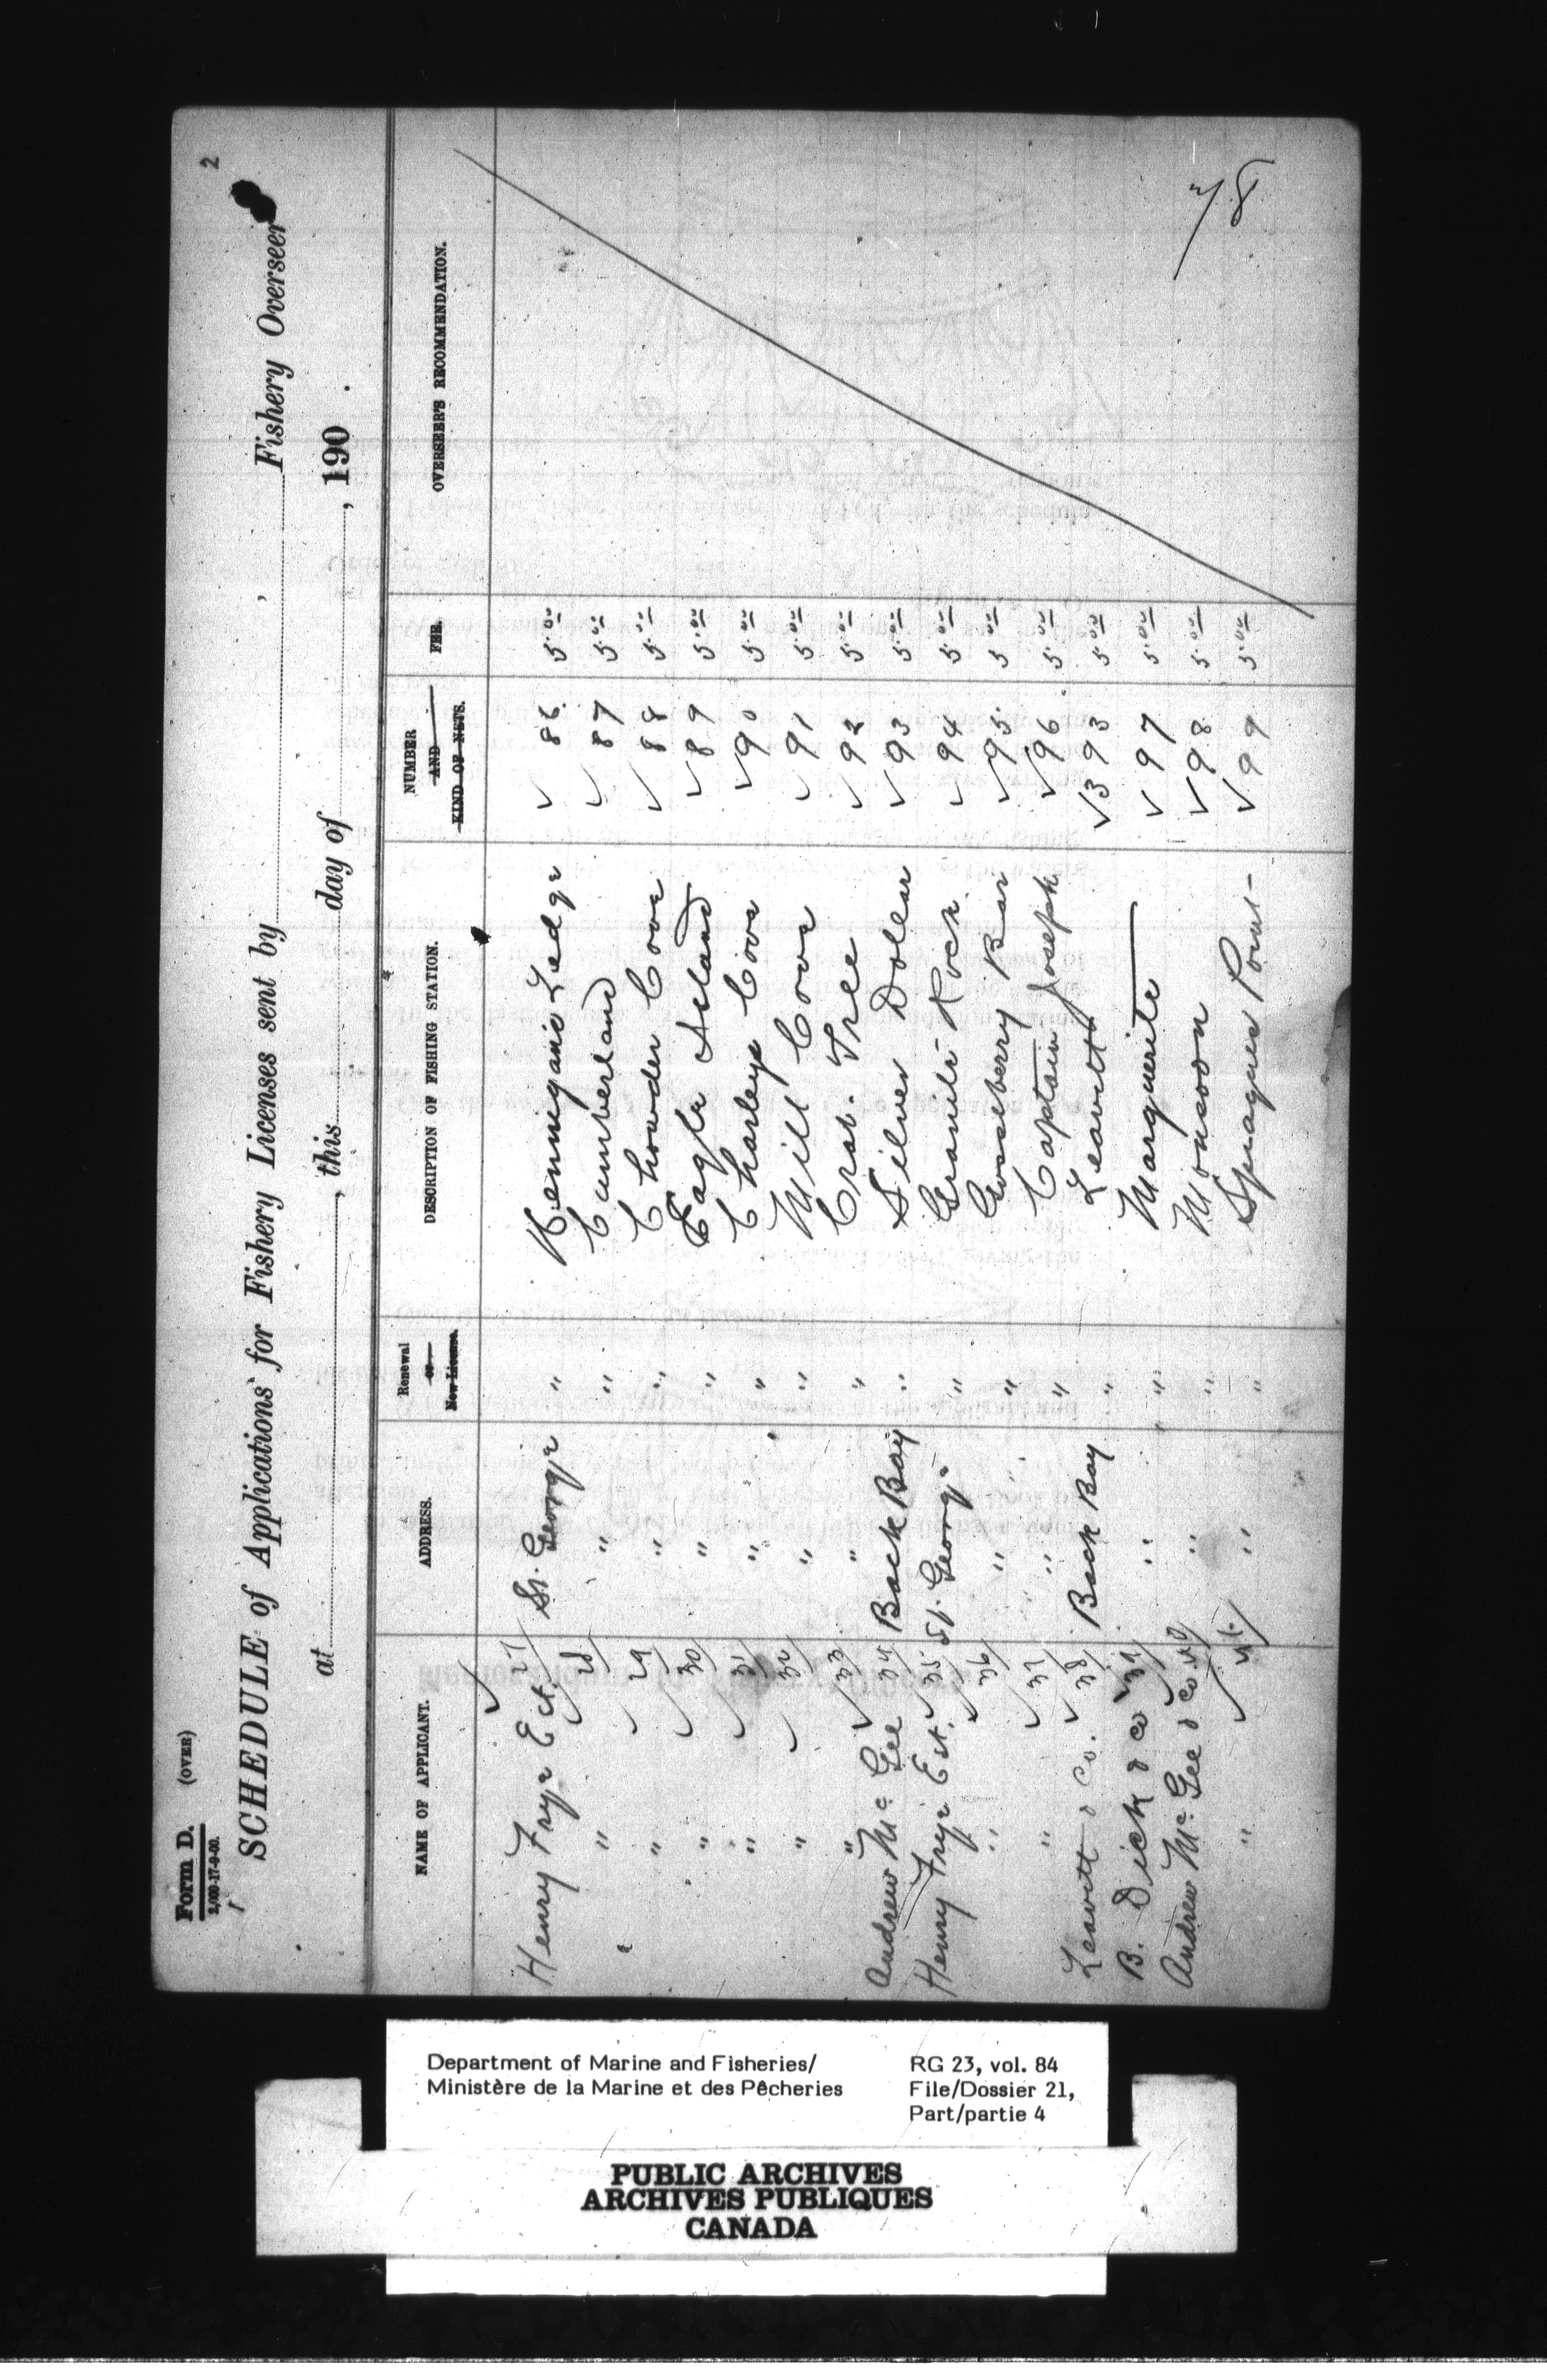 2
Form D. (OVER)
2,000-17-9-00.
SCHEDULE of Applications for Fishery Licenses sent by , Fishery Overseer
at , this day of , 190 .
NAME OF APPLICANT. ADDRESS. Renewal or New License. DESCRIPTION OF FISHING STATION. NUMBER AND KIND OF NETS. FEE. OVERSEER'S RECOMMENDATION.
Henry Frye Est. 27 St. George " Hennigan's Ledge 86 5.00
" 28 " " Cumberland 87 5.00
" 29 " " Chowder Cove 88 5.00
" 30 " " Eagle Island 89 5.00
" 31 " " Charleys Cove 90 5.00
" 32 " " Mill Cove 91 5.00
" 33 " " Crab. Tree 92 5.00
Andrew McGee 34 Back Bay " Silver Dollar 93 5.00
Henry Frye Est. 35 St. George " Granite Rock 94 5.00
" 36 " " Gooseberry Bar 95 5.00
" 37 " " Captain Joseph 96 5.00
Leavitt & Co. 38 Back Bay " Leavitt 393 5.00
B. Dick & Co 39 " " Marguerite 97 5.00
Andrew McGee & Co 40 " " Monsoon 98 5.00
" 41 " " Spragues Point 99 5.00
78
Department of Marine and Fisheries/
Ministère de la Marine et des Pêcheries
RG 23, vol. 84
File/Dossier 21,
Part/partie 4
PUBLIC ARCHIVES
ARCHIVES PUBLIQUES
CANADA